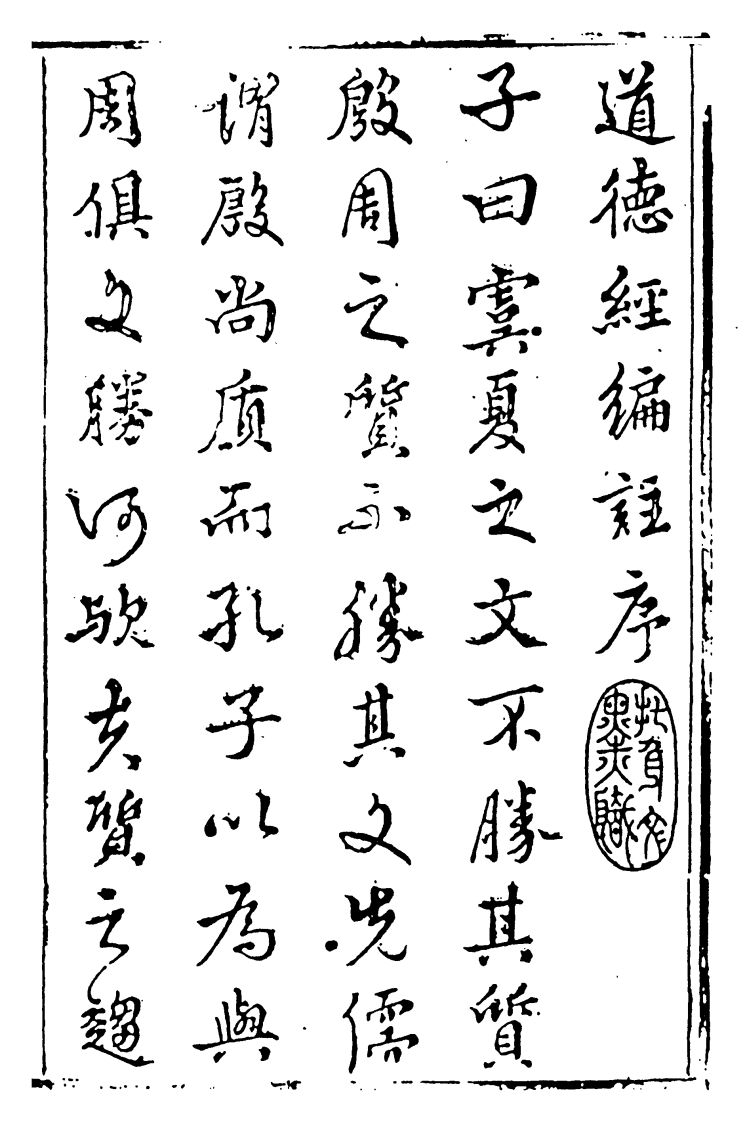 道德經編註序
子曰虞夏之文不勝其質
殷周之質不勝其文先儒
謂殷尚质而孔子以為與
周俱文勝何歟夫質之趨